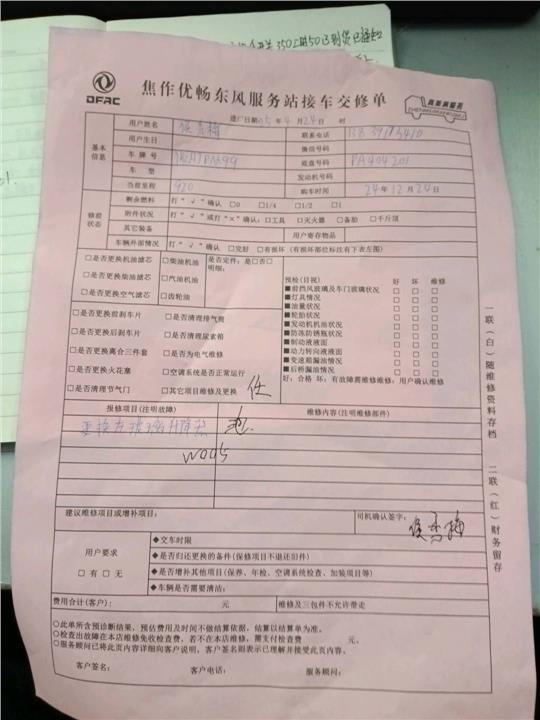 DFAC
焦作优畅东风服务站接车交修单
真新满服务
ZHENXINMANFUWU
基本信息
进厂日期05年4月24日 时
用户姓名 侯秀梅 联系电话
用户生日 微信号码
车牌号 底盘号码 PA404201
车型 发动机号码
当前里程 920 购车时间 24年12月24日
修前状态
剩余燃料 打“√”确认 □0 □1/4 □1/2 □1
附件状况 打“√”或打“×”确认：□工具 □灭火器 □备胎 □千斤顶
其它装备 用户寄存物品
车辆外部情况 打“√”确认 □完好 □有损坏（有损坏部位标注有下表左图）
□是否更换机油滤芯 □柴油机油
□是否更换柴油滤芯 □汽油机油
□是否更换空气滤芯 □齿轮油
是否定件：是□否□
明细：
□是否更换前刹车片 □是否清理排气筒
□是否更换后刹车片 □是否清理尿素箱
□是否更换离合三件套 □是否为电气维修
□是否更换火花塞 □空调系统是否正常运行
□是否清理节气门 □其它项目维修及更换
预检(目视) 好 坏 维修
■前挡风玻璃及车门玻璃状况 □ □ □
■灯具情况 □ □ □
■油量状况 □ □ □
■轮胎状况 □ □ □
■发动机机油状况 □ □ □
■防冻防锈瓶状况 □ □ □
■制动液液面 □ □ □
■动力转向液液面 □ □ □
■变速箱漏油情况 □ □ □
■后桥漏油情况 □ □ □
好：合格 坏：有故障需维修维修：用户确认维修
报修项目(注明故障) 维修内容(注明维修部件)
更换左玻璃升降器
建议维修项目或增补项目： 司机确认签字：
侯秀梅
用户要求
□有 □无
◆交车时限
◆是否归还更换的备件(保修项目不退还旧件)
◆是否增补其他项目(保养、年检、空调系统检查、加装项目等)
◆车辆是否需要清洁：
费用合计(客户)： 元 维修及三包件不允许带走
○此单所含预诊断结果、预估费用及时间不做结算依据，结算以结算单为准。
○检查出故障在本店维修免收检查费，若不在本店维修，需支付检查费 元。
○服务顾问已将此页内容详细向客户说明，客户签名则表示已理解并接受此页内容。
客户签名： 客户电话： 服务顾问：
一联（白）随维修资料存档
二联（红）财务留存